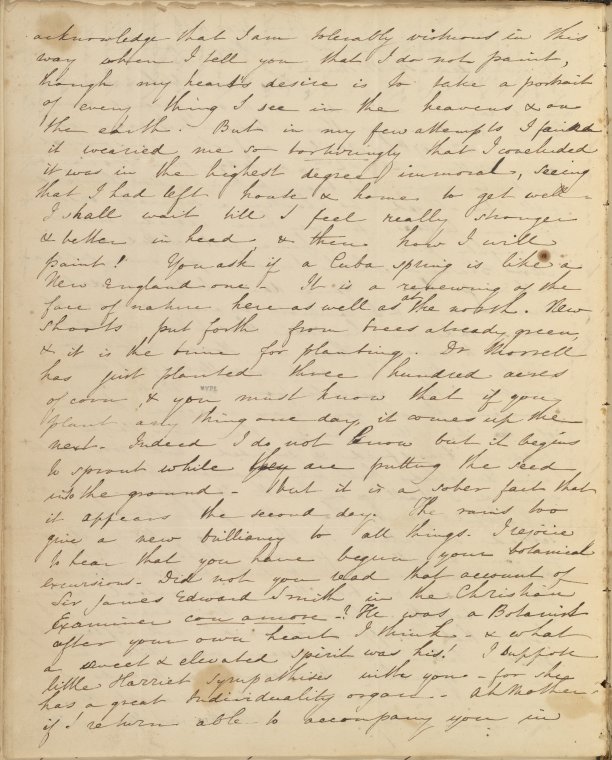 acknowledge that I am tolerably virtuous in this
way when I tell you that I do not paint,
though my heart's desire is to take a portrait
of every thing I see in the heavens & on
the earth. But in my few attempts I found
it wearied me so torturingly that I concluded
it was in the highest degree immoral, seeing
that I had left house & home to get well -
I shall wait till I feel really stronger
& better in head, & then how I will
paint! You ask if a Cuba spring is like a
New England one - It is a renewing of the
face of nature here as well as at the north. New
shoots put forth from trees already green,
& it is the time for planting. Dr Morrell
has just planted three hundred acres
of corn, & you must know that if you
plant any thing one day, it comes up the
next. Indeed I do not know but it begins
to sprout while they are putting the seed
into the ground - but it is a sober fact that
it appears the second day. The rains too
give a new brilliancy to all things. I rejoice
to hear that you have begun your botanical
excursions. Did not you read that account of
Sir James Edward Smith in the Christian
Examiner con amore? He was a Botanist
after your own heart I think - & what
a sweet & elevated spirit was his! I suppose
little Harriet sympathises with you - for she
has a great Individuality organ - Ah Mother!
if I return able to accompany you in